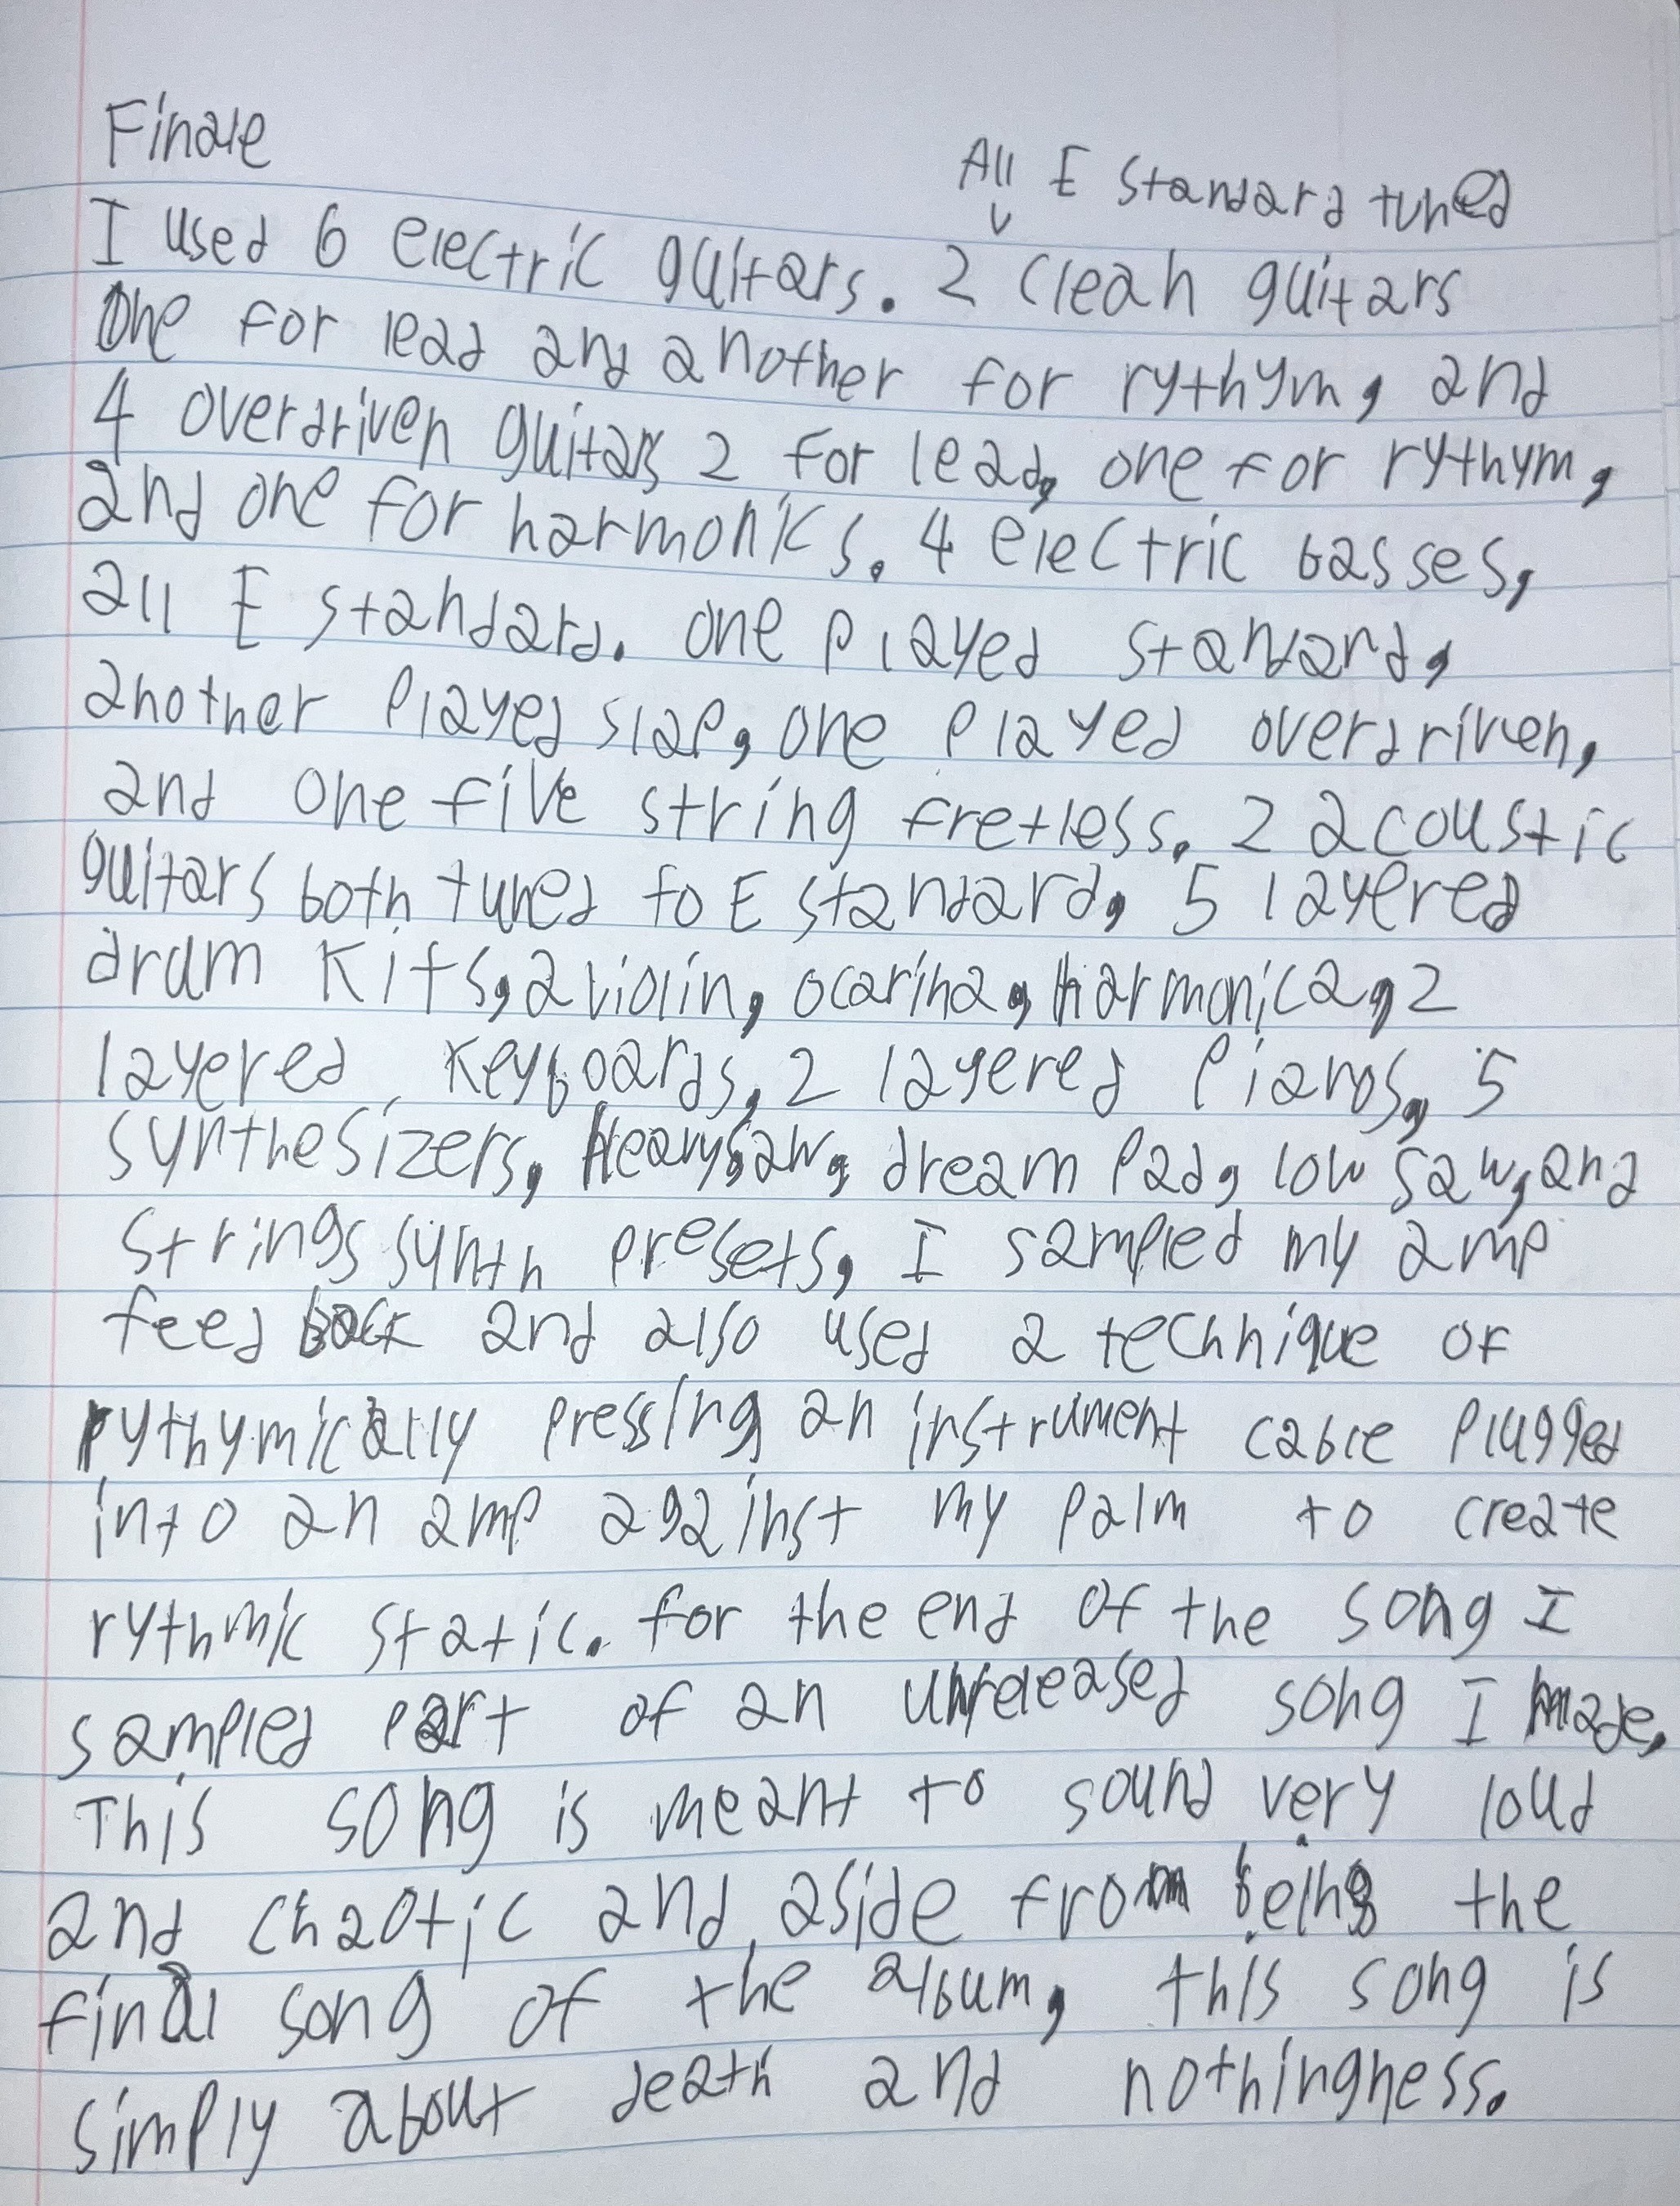 Finale
All E standard tuned
I used 6 electric guitars. 2 clean guitars
One for lead and another for rythym, and
4 overdriven guitars 2 for lead, one for rythym,
and one for harmonics. 4 electric basses,
all E standard. one played standard,
another played slap, one played overdriven,
and one five string fretless. 2 acoustic
guitars both tuned to E standard, 5 layered
drum kits, a violin, ocarina, harmonica, 2
layered keyboards, 2 layered pianos, 5
synthesizers, Heavy saw, dream pad, low saw, and
strings synth presets, I sampled my amp
feed back and also used a technique of
rythymically pressing an instrument cable plugged
into an amp against my palm to create
rythmic static. for the end of the song I
sampled part of an unreleased song I made.
This song is meant to sound very loud
and chaotic and aside from being the
final song of the album, this song is
simply about death and nothingness.